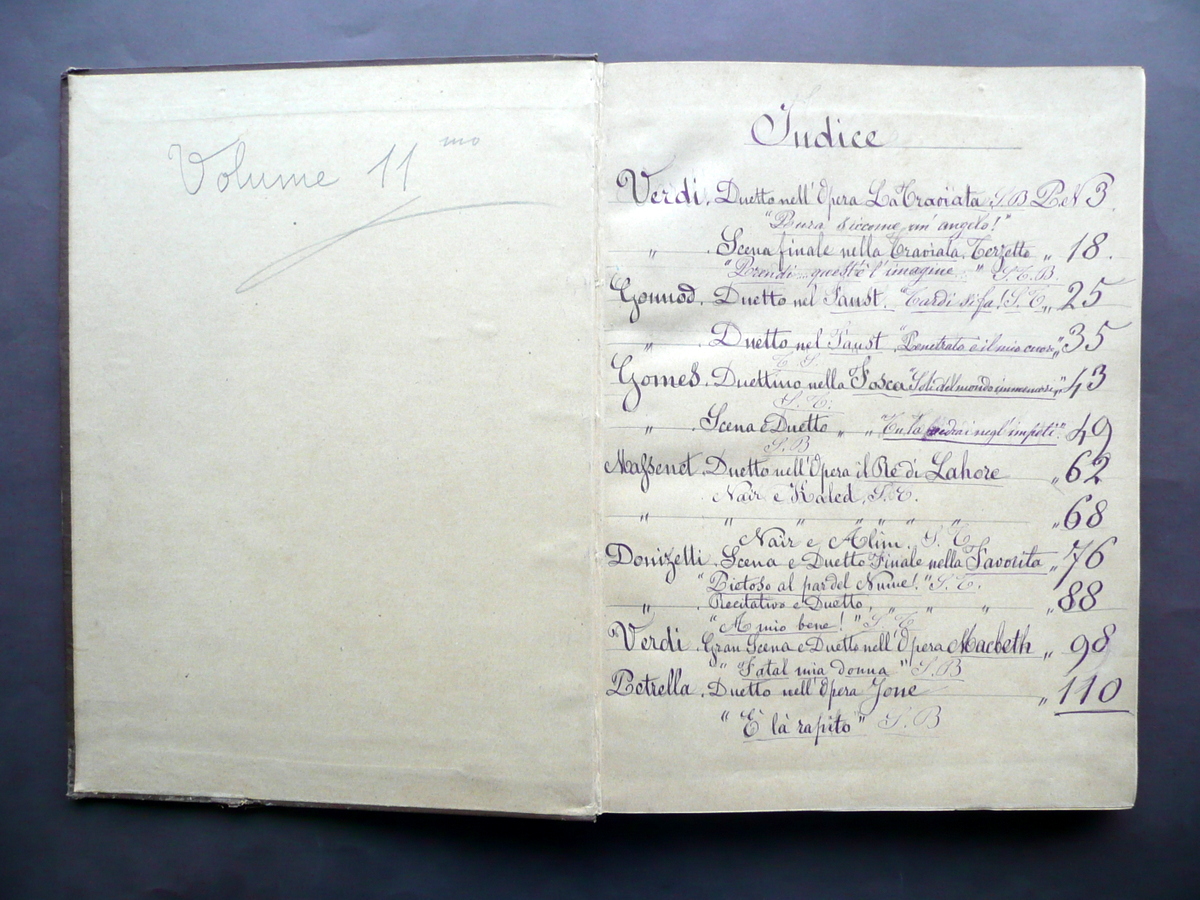 Volume 11 mo
Indice
Verdi. Duetto nell'Opera La Traviata S.B. P. N 3.
"Pura siccome un' angelo!"
" . Scena finale nella Traviata. Terzetto " 18.
"Prendi quest'è l'imagine" S.T.B.
Gounod. Duetto nel Faust. "Tardi si fa! S.T. " 25
" . Duetto nel Faust "Penetrato è il mio cuore " 35
T S.
Gomes. Duettino nella Fosca "Soli del mondo immemori " 43
S.T.
" . Scena e Duetto " " "Tu la vedrai negl'impeti" 49
S.B
Massenet. Duetto nell'Opera il Re di Lahore " 62
Nair e Kaled. S.T.
" " " " " " " 68
Nair e Alim. S.T.
Donizetti. Scena e Duetto Finale nella Favorita " 76
"Pietoso al par del Nume!" S.T.
" . Recitativo e Duetto, " " " 88
"A mio bene!" S.T.
Verdi. Gran Scena e Duetto nell'Opera Macbeth " 98
"Fatal mia donna" S.B
Petrella. Duetto nell'Opera Jone " 110
"È là rapito" S.B